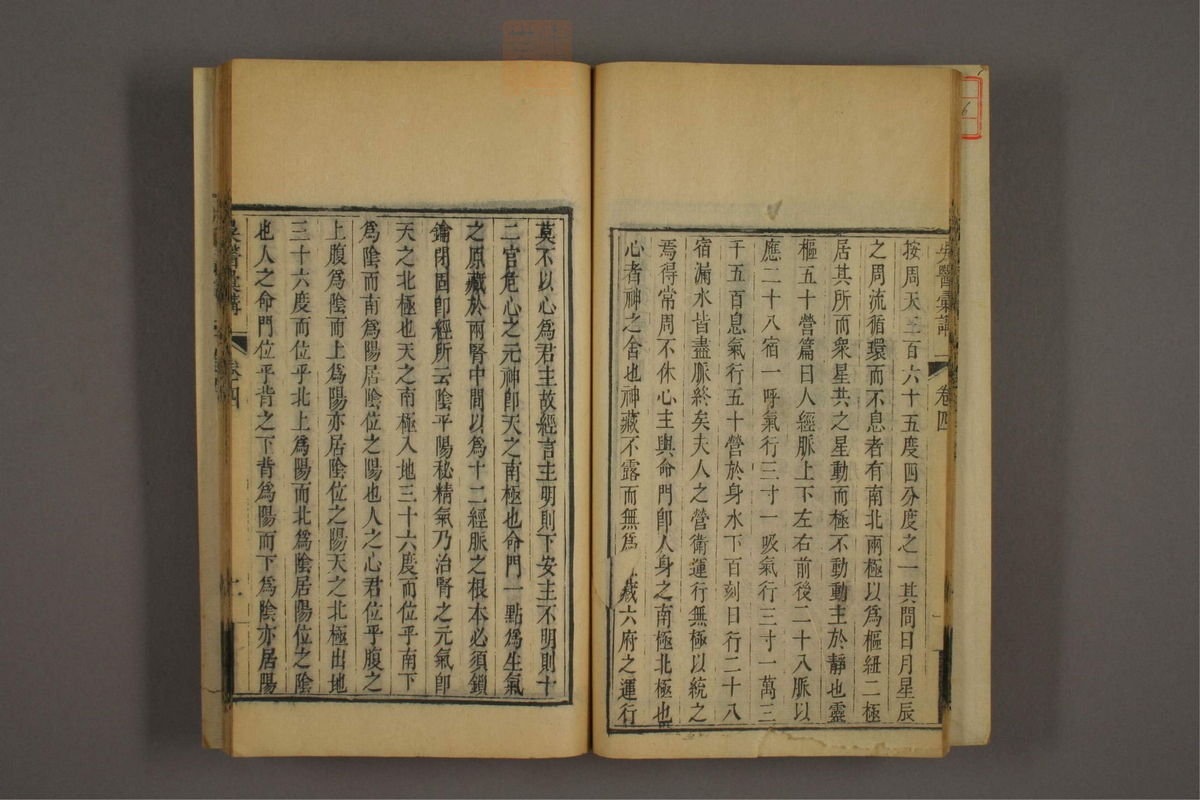 吳醫彙講 卷四
按周天三百六十五度四分度之一其間日月星辰
之周流循環而不息者有南北兩極以爲樞紐二極
居其所而衆星共之星動而極不動動主於靜也靈
樞五十營篇曰人經脈上下左右前後二十八脈以
應二十八宿一呼氣行三寸一吸氣行三寸一萬三
千五百息氣行五十營於身水下百刻日行二十八
宿漏水皆盡脈終矣夫人之營衛運行無極以統之
焉得常周不休心主與命門卽人身之南極北極也
心者神之舍也神藏不露而無爲 藏六府之運行
莫不以心爲君主故經言主明則下安主不明則十
二官危心之元神卽天之南極也命門一點爲生氣
之原藏於兩腎中間以爲十二經脈之根本必須鎖
鑰閉固卽經所云陰平陽秘精氣乃治腎之元氣卽
天之北極也天之南極入地三十六度而位乎南下
爲陰而南爲陽居陰位之陽也人之心君位乎腹之
上腹爲陰而上爲陽亦居陰位之陽天之北極出地
三十六度而位乎北上爲陽而北爲陰居陽位之陰
也人之命門位乎背之下背爲陽而下爲陰亦居陽
吳醫彙講 卷四